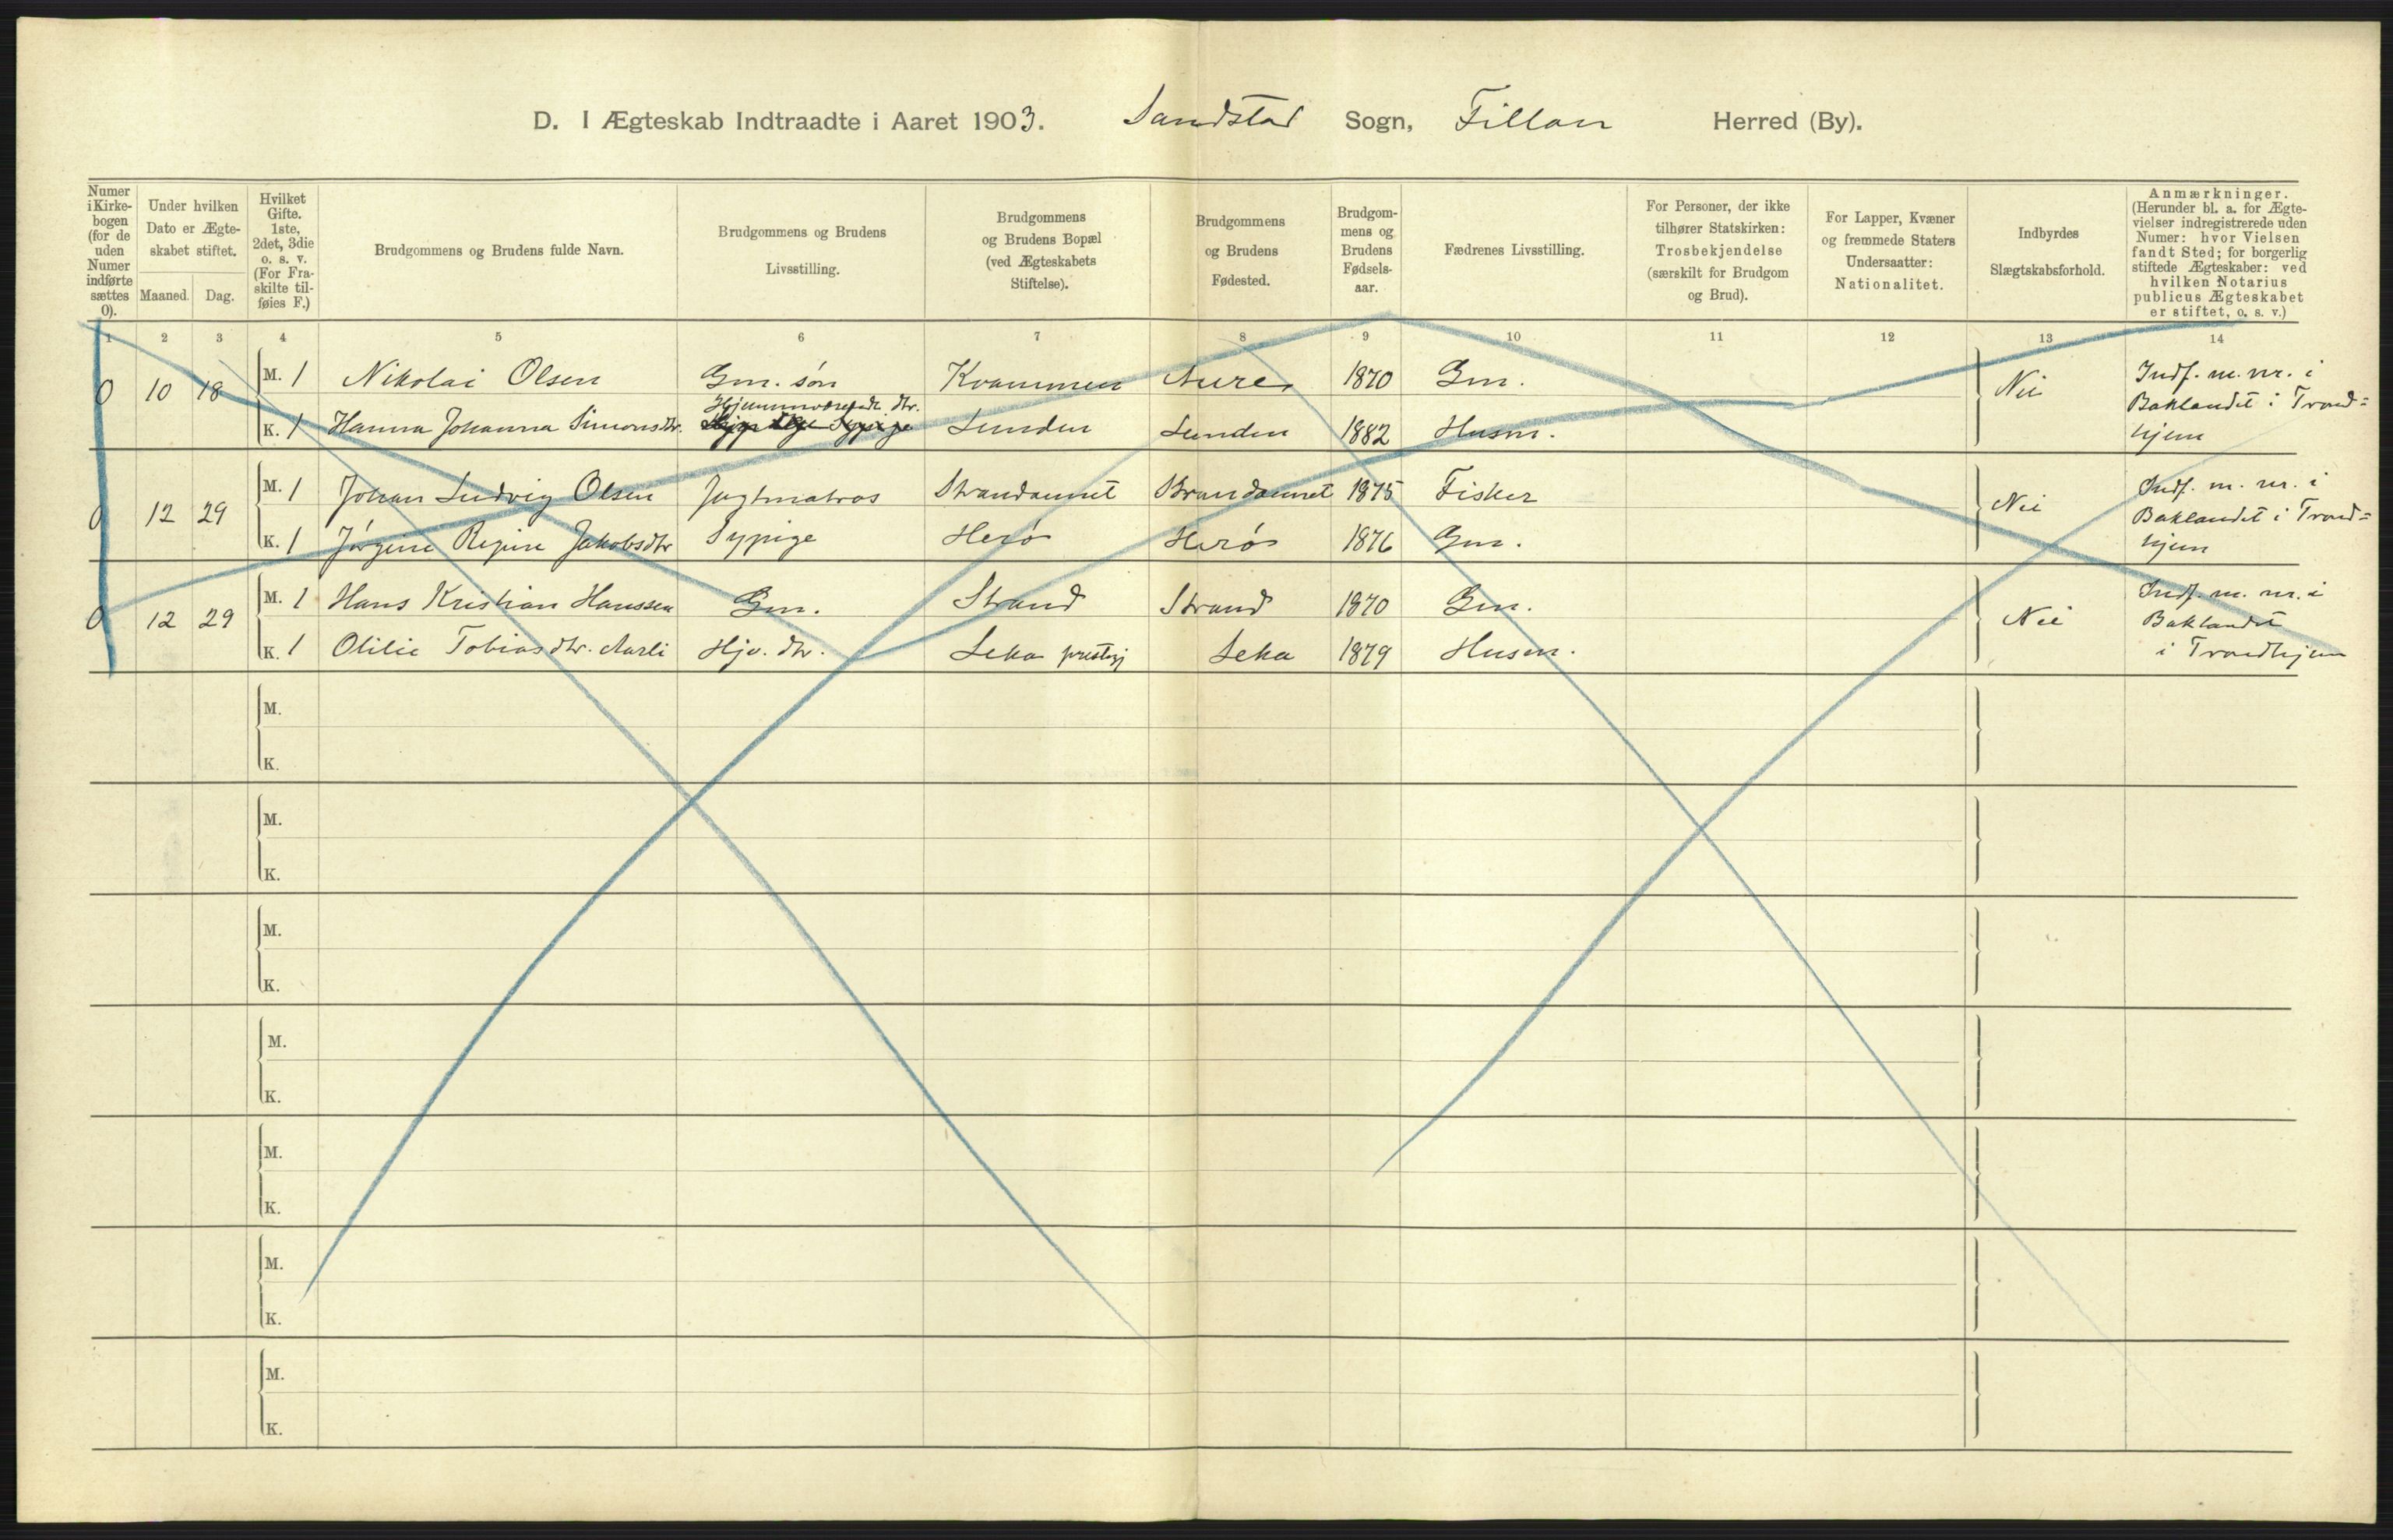 D. I Ægteskab Indtraadte i Aaret 1903. Sandstad Sogn, Fillan Herred (By).
Numer i Kirkebogen (for de uden Numer indførte sættes 0).
Under hvilken Dato er Ægteskabet stiftet.
Maaned. Dag.
Hvilket Gifte. 1ste, 2det, 3die o. s. v. (For Fraskilte tilføies F.)
Brudgommens og Brudens fulde Navn.
Brudgommens og Brudens Livsstilling.
Brudgommens og Brudens Bopæl (ved Ægteskabets Stiftelse).
Brudgommens og Brudens Fødested.
Brudgommens og Brudens Fødselsaar.
Fædrenes Livsstilling.
For Personer, der ikke tilhører Statskirken: Trosbekjendelse (særskilt for Brudgom og Brud).
For Lapper, Kvæner og fremmede Staters Undersaatter: Nationalitet.
Indbyrdes Slægtskabsforhold.
Anmærkninger. (Herunder bl. a. for Ægtevielser indregistrerede uden Numer: hvor Vielsen fandt Sted; for borgerlig stiftede Ægteskaber: ved hvilken Notarius publicus Ægteskabet er stiftet, o. s. v.)
1 2 3 4 5 6 7 8 9 10 11 12 13 14
0 10 18 M. 1 Nikolai Olsen Gm. søn Kvammen Aure 1870 Gm. Nei Indf. m. nr. i Baklandet i Trond=hjem
K. 1 Hanna Johanna Simonsdtr. Hjemmeværende dtr. Lunden Lunden 1882 Husm.
0 12 29 M. 1 Johan Ludvig Olsen Jagtmatros Strandannet Strandannet 1875 Fisker Nei Indf. m. nr. i Baklandet i Trond=hjem
K. 1 Jørgine Regine Jakobsdtr Sypige Herø Herø 1876 Gm.
0 12 29 M. 1 Hans Kristian Hanssen Gm. Strand Strand 1870 Gm. Nei Indf. m. nr. i Baklandet i Trondhjem
K. 1 Otilie Tobiasdtr. Aarli Hjv. dtr. Leka prestgj Leka 1879 Husm.
M.
K.
M.
K.
M.
K.
M.
K.
M.
K.
M.
K.
M.
K.